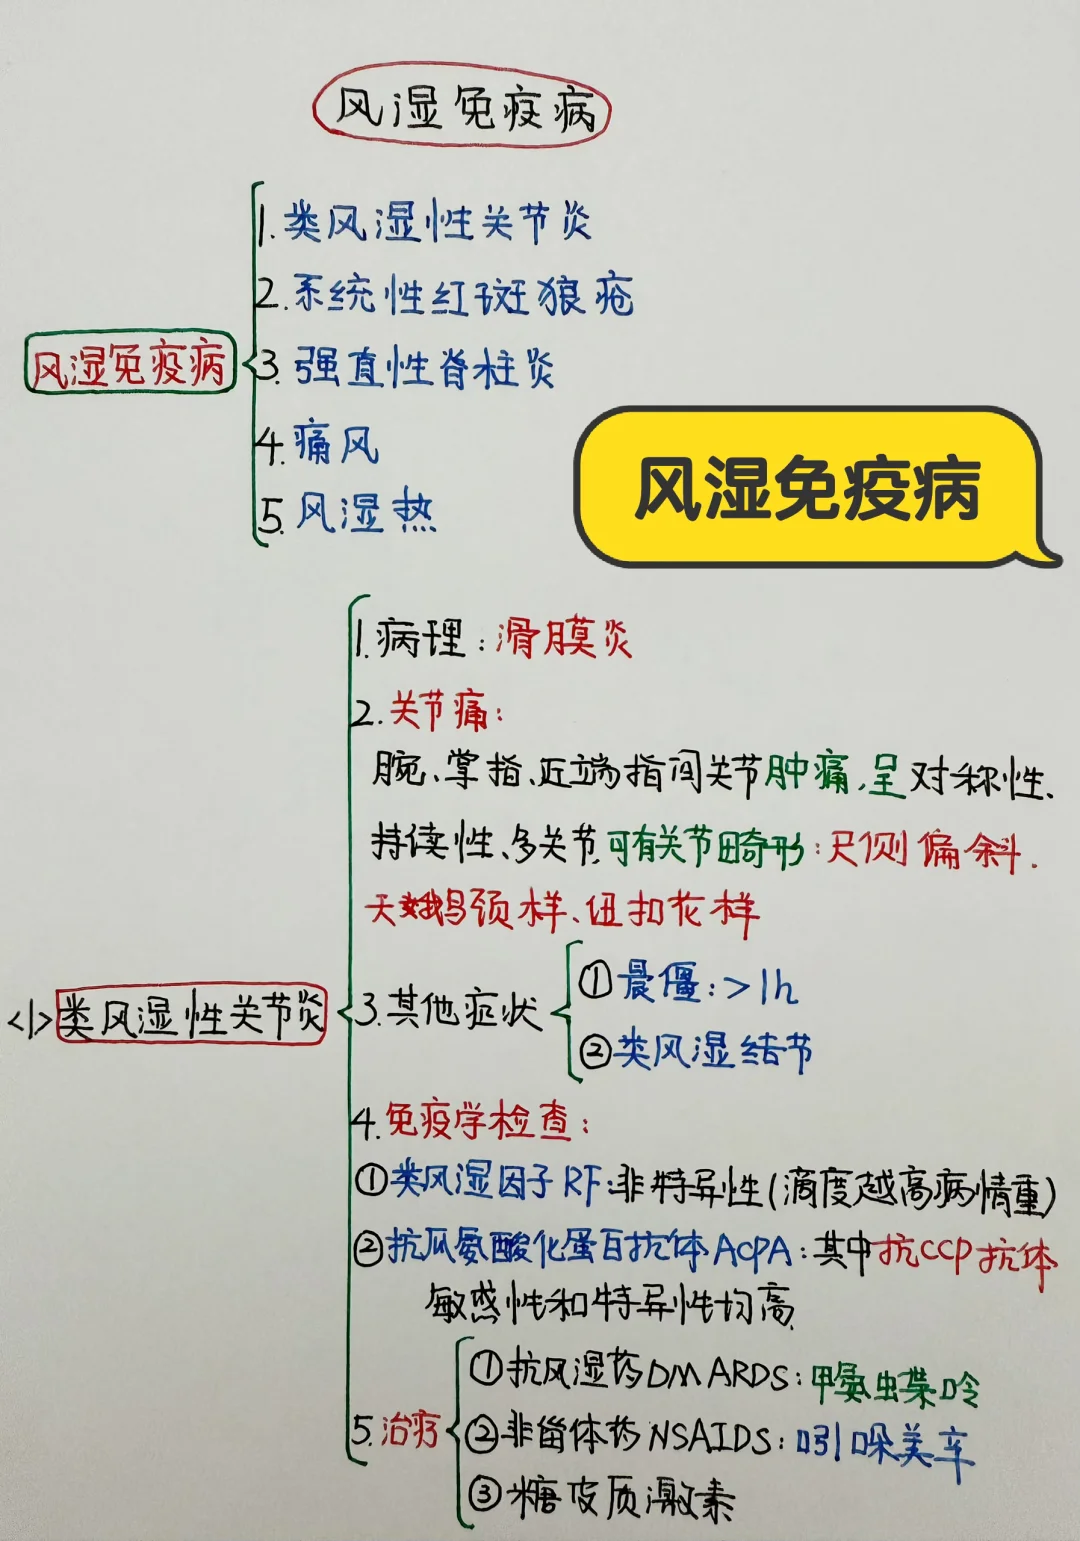 风湿免疫病
1.类风湿性关节炎
2.系统性红斑狼疮
风湿免疫病
3.强直性脊柱炎
4.痛风
5.风湿热
风湿免疫病
1.病理:滑膜炎
2.关节痛:
腕、掌指、近端指间关节肿痛,呈对称性、
持续性、多关节,可有关节畸形:尺侧偏斜、
天鹅颈样、纽扣花样
<1>类风湿性关节炎
3.其他症状
①晨僵:>1h
②类风湿结节
4.免疫学检查:
①类风湿因子RF:非特异性(滴度越高病情重)
②抗瓜氨酸化蛋白抗体ACPA:其中抗CCP抗体
敏感性和特异性均高
5.治疗
①抗风湿药DMARDS:甲氨蝶呤
②非甾体药NSAIDS:吲哚美辛
③糖皮质激素